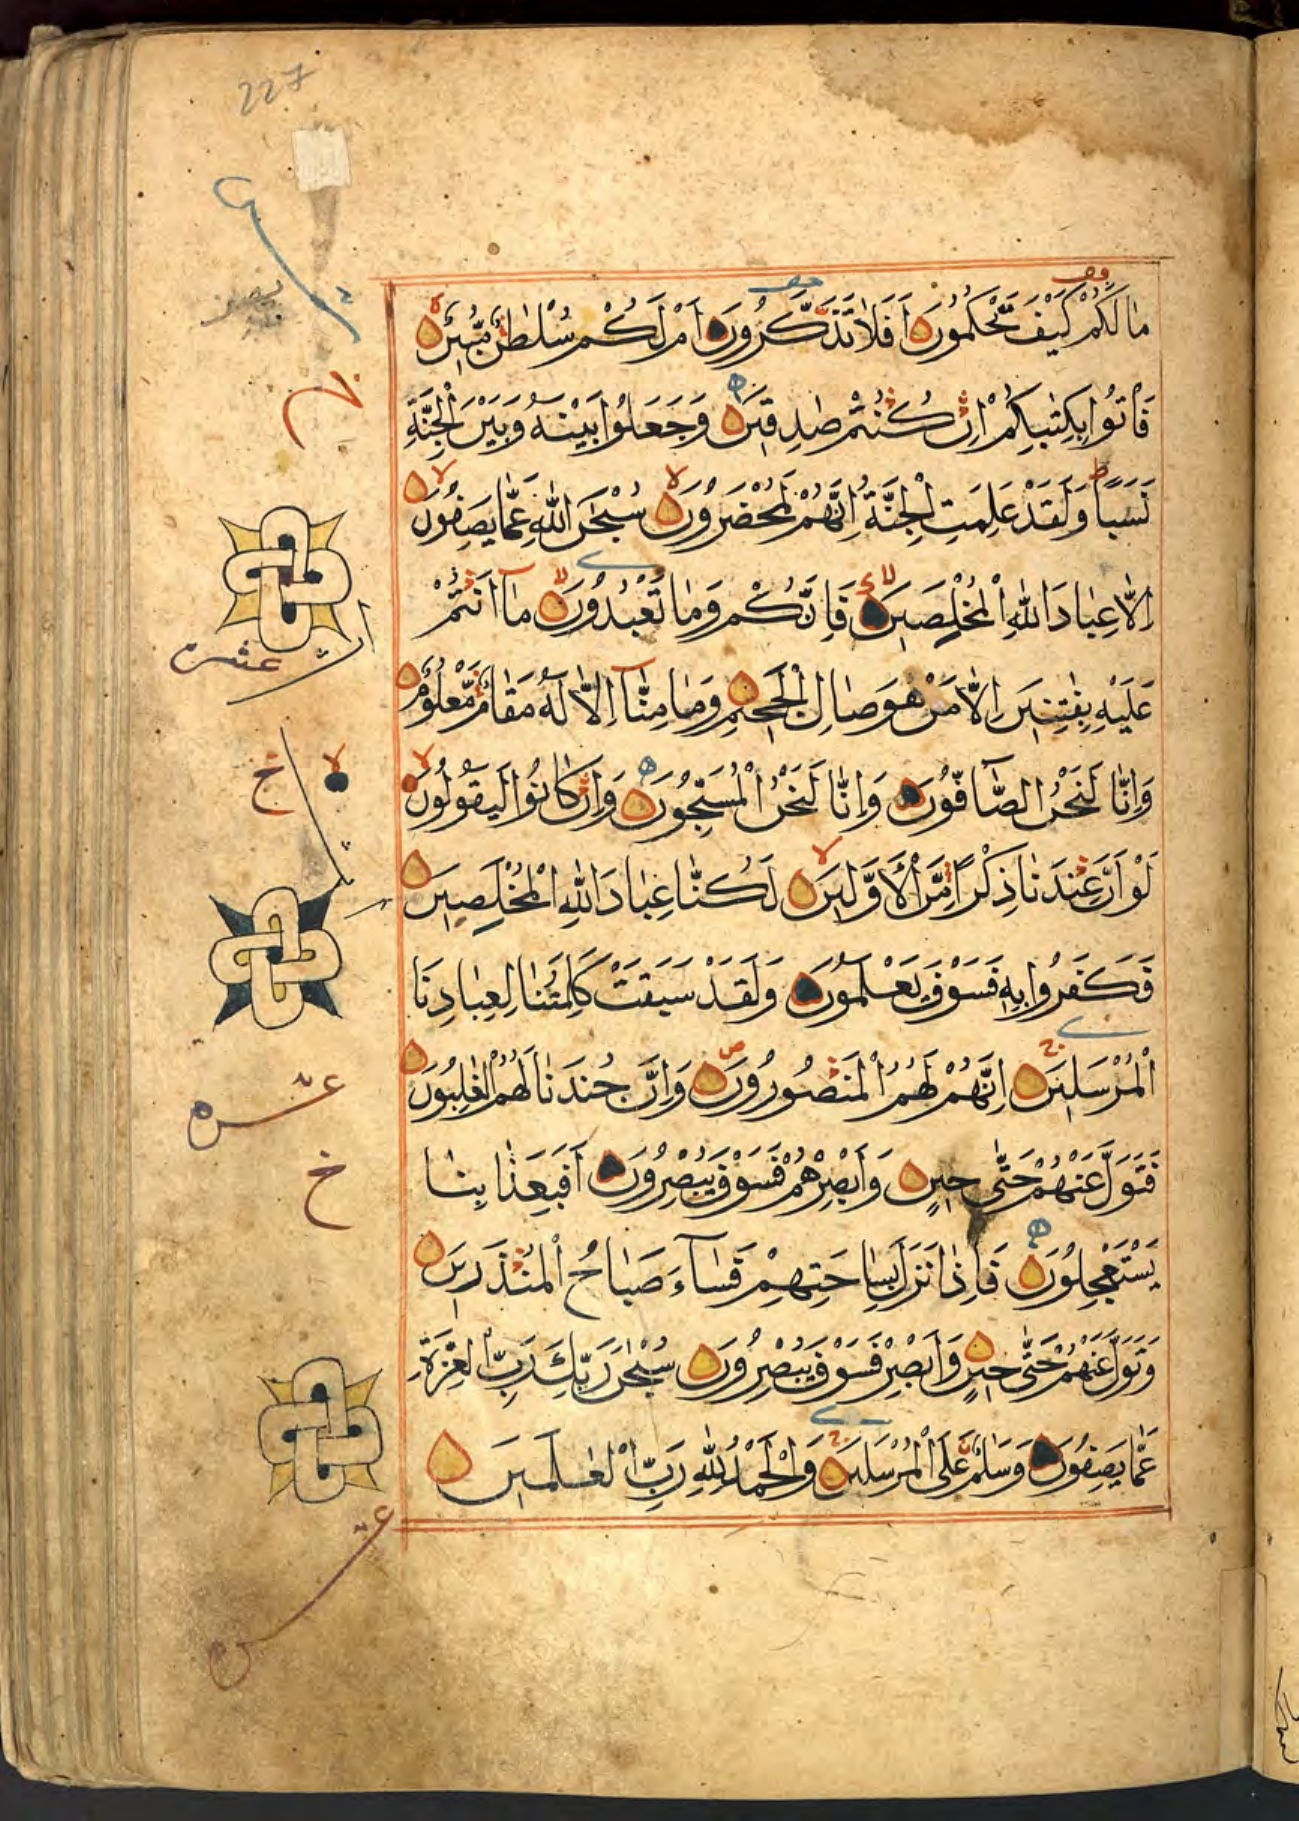 227
مَا لَكُمْ كَيْفَ تَحْكُمُونَ أَفَلَا تَذَكَّرُونَ أَمْ لَكُمْ سُلْطٰنٌ مُّبِينٌ
فَأْتُوا بِكِتٰبِكُمْ إِنْ كُنْتُمْ صٰدِقِينَ وَجَعَلُوا بَيْنَهُ وَبَيْنَ الْجِنَّةِ
نَسَبًا وَلَقَدْ عَلِمَتِ الْجِنَّةُ إِنَّهُمْ لَمُحْضَرُونَ سُبْحٰنَ اللّٰهِ عَمَّا يَصِفُونَ
إِلَّا عِبَادَ اللّٰهِ الْمُخْلِصِينَ فَإِنَّكُمْ وَمَا تَعْبُدُونَ مَا أَنْتُمْ
عَلَيْهِ بِفٰتِنِينَ إِلَّا مَنْ هُوَ صَالِ الْجَحِيمِ وَمَا مِنَّا إِلَّا لَهُ مَقَامٌ مَّعْلُومٌ
وَإِنَّا لَنَحْنُ الصَّافُّونَ وَإِنَّا لَنَحْنُ الْمُسَبِّحُونَ وَإِنْ كَانُوا لَيَقُولُونَ
لَوْ أَنَّ عِنْدَنَا ذِكْرًا مِّنَ الْأَوَّلِينَ لَكُنَّا عِبَادَ اللّٰهِ الْمُخْلِصِينَ
فَكَفَرُوا بِهِ فَسَوْفَ يَعْلَمُونَ وَلَقَدْ سَبَقَتْ كَلِمَتُنَا لِعِبَادِنَا
الْمُرْسَلِينَ إِنَّهُمْ لَهُمُ الْمَنْصُورُونَ وَإِنَّ جُنْدَنَا لَهُمُ الْغٰلِبُونَ
فَتَوَلَّ عَنْهُمْ حَتّٰى حِينٍ وَأَبْصِرْهُمْ فَسَوْفَ يُبْصِرُونَ أَفَبِعَذَابِنَا
يَسْتَعْجِلُونَ فَإِذَا نَزَلَ بِسَاحَتِهِمْ فَسَاءَ صَبَاحُ الْمُنْذَرِينَ
وَتَوَلَّ عَنْهُمْ حَتّٰى حِينٍ وَأَبْصِرْ فَسَوْفَ يُبْصِرُونَ سُبْحٰنَ رَبِّكَ رَبِّ الْعِزَّةِ
عَمَّا يَصِفُونَ وَسَلٰمٌ عَلَى الْمُرْسَلِينَ وَالْحَمْدُ لِلّٰهِ رَبِّ الْعٰلَمِينَ
عشر
خ
عشر
خ
عشر